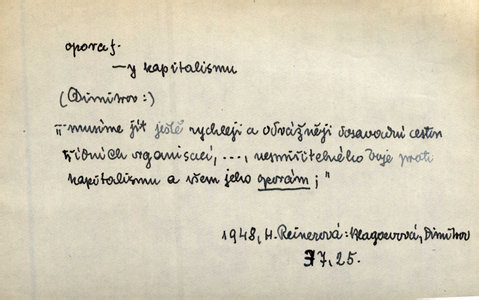 opora f.
— y kapitalismu
(Dimitrov:)
„musíme jít ještě rychleji a odvážněji dosavadní cestou
třídních organisací, ..., nesmiřitelného boje proti
kapitalismu a všem jeho oporám;"
1948, H. Reinerová: Blagoevová, Dimitrov
77, 25.